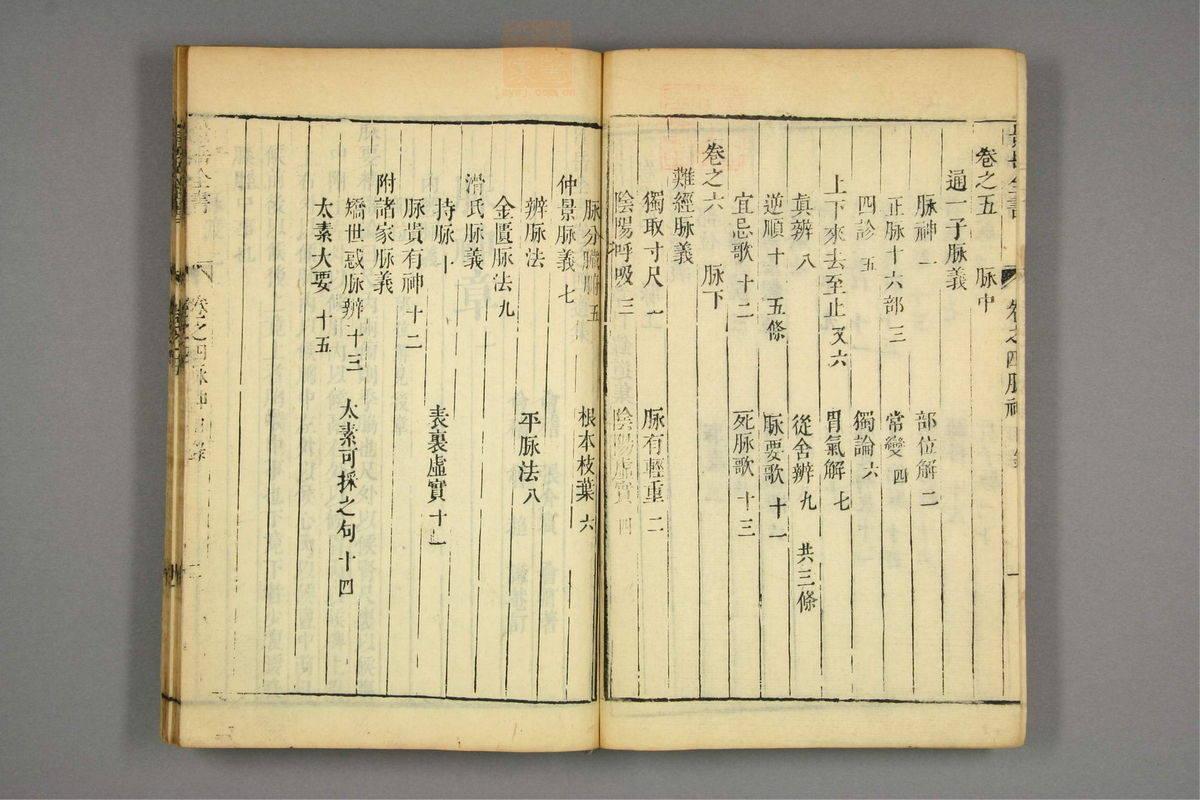 景岳全書 卷之四脉神 目錄 一
卷之五 脉中
通一子脉義
脉神一 部位解二
正脉十六部三 常變四
四診五 獨論六
上下來去至止又六 胃氣解七
眞辨八 從舍辨九 共三條
逆順十 五條 脉要歌十一
宜忌歌十二 死脉歌十三
卷之六 脉下
難經脉義
獨取寸尺一 脉有輕重二
陰陽呼吸三 陰陽虛實四
脉分臟腑五 根本枝葉六
仲景脉義七
辨脉法 平脉法八
金匱脉法九
滑氏脉義
持脉十 表裏虛實十一
脉貴有神十二
附諸家脉義
矯世惑脉辨十三 太素可採之句十四
太素大要十五
景岳全書 卷之四脉神 目錄 二